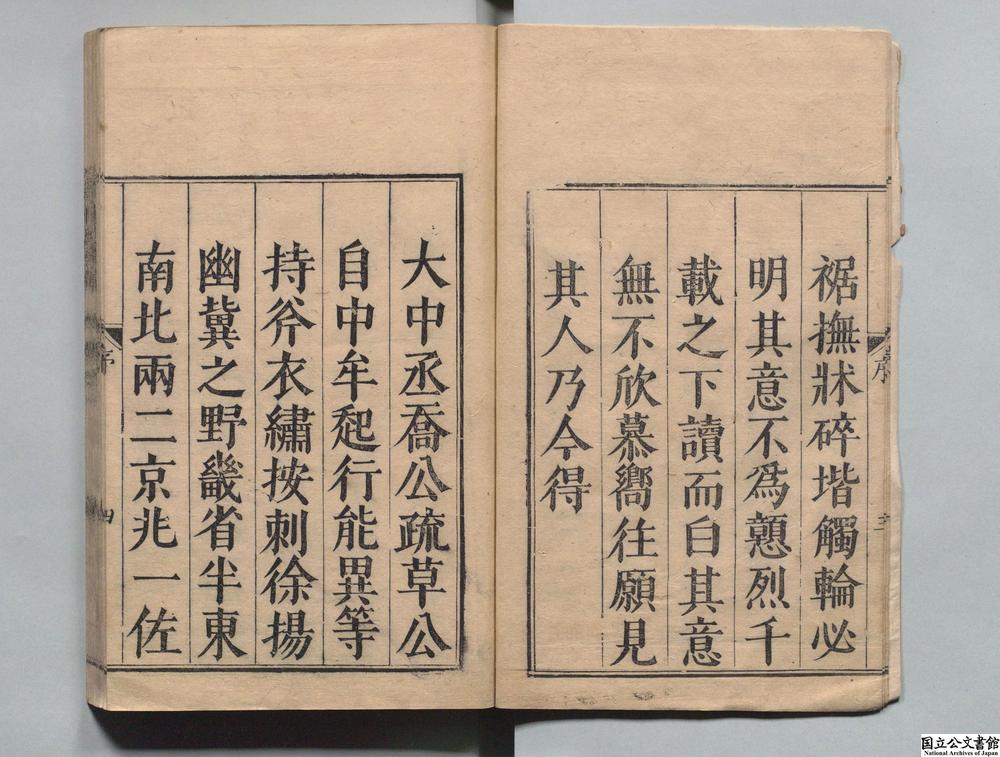 裾撫牀碎堦觸輪必
明其意不為戅烈千
載之下讀而白其意
無不欣慕嚮往願見
其人乃今得
序
大中丞喬公疏草公
自中牟起行能異等
持斧衣繡按刺徐揚
幽冀之野畿省半東
南北兩二京兆一佐
序
四
国立公文書館
National Archives of Japan